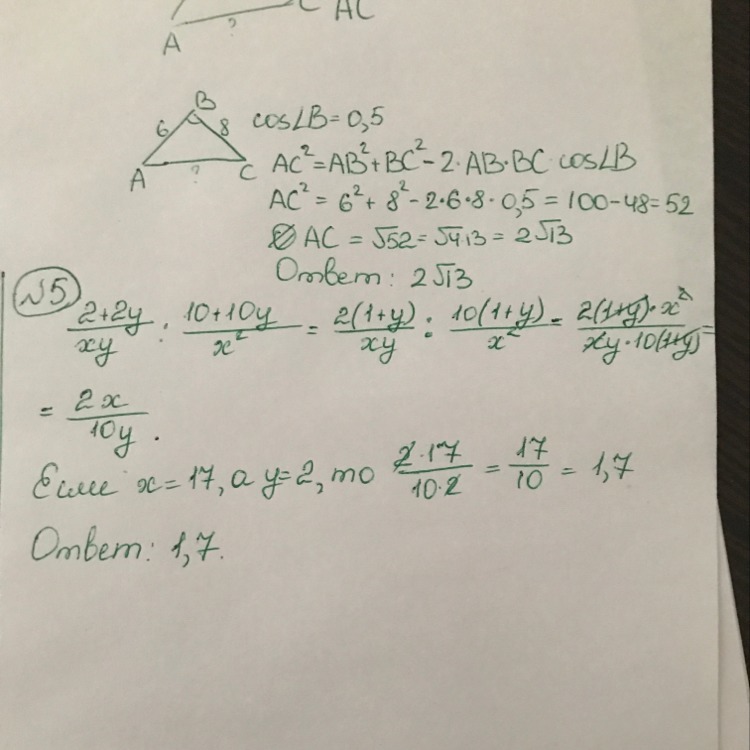 C AC
A ?
B
6 8 cos∠B = 0,5
A ? C AC² = AB² + BC² - 2·AB·BC cos∠B
AC² = 6² + 8² - 2·6·8·0,5 = 100 - 48 = 52
AC = √52 = √4·13 = 2√13
Ответ: 2√13
№5
(2+2y)/(xy) : (10+10y)/(x²) = (2(1+y))/(xy) : (10(1+y))/(x²) = (2(1+y)·x²)/(xy·10(1+y)) =
= (2x)/(10y).
Если x = 17, а y = 2, то (2·17)/(10·2) = 17/10 = 1,7
Ответ: 1,7.